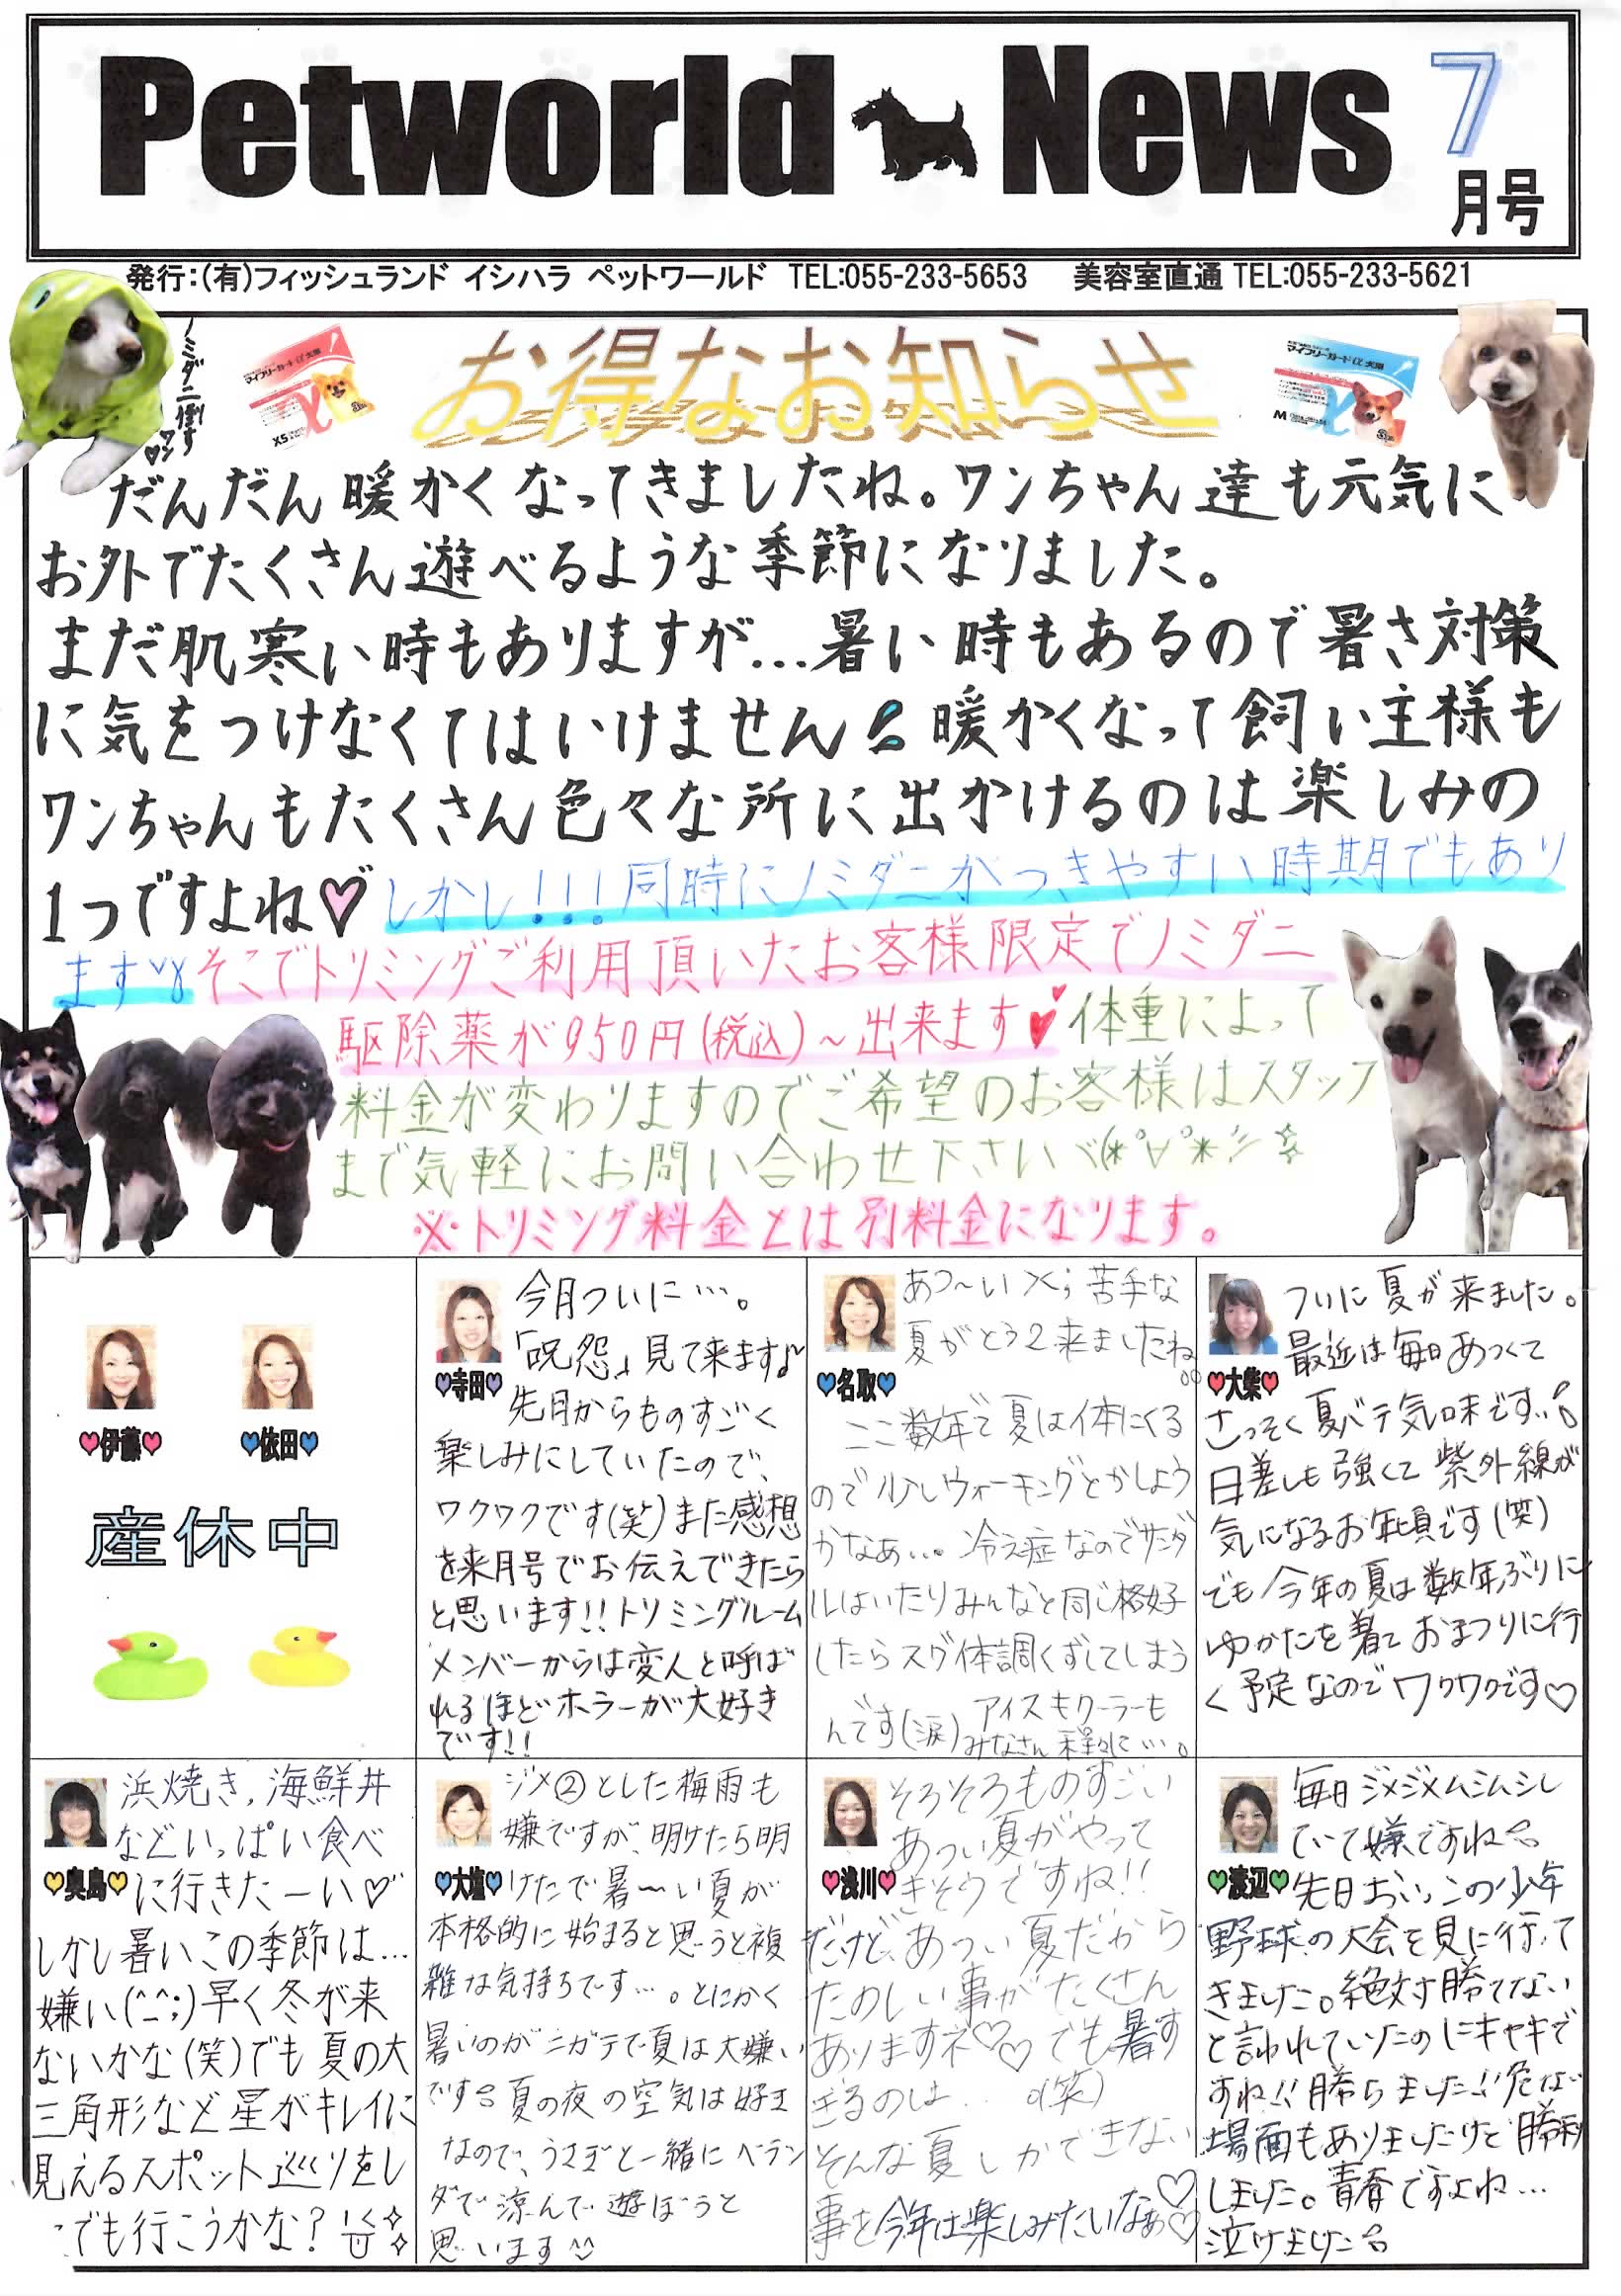 Petworld News 7
月号
発行:(有)フィッシュランド イシハラ ペットワールド TEL:055-233-5653 美容室直通 TEL:055-233-5621
ノミダニ倒すワン♡
マイフリーガードα 犬用
XS
お得なお知らせ
マイフリーガードα 犬用
M
だんだん暖かくなってきましたね。ワンちゃん達も元気に
お外でたくさん遊べるような季節になりました。
まだ肌寒い時もありますが…暑い時もあるので暑さ対策
に気をつけなくてはいけません 暖かくなって飼い主様も
ワンちゃんもたくさん色々な所に出かけるのは楽しみの
1つですよね♡しかし!!!同時にノミダニがつきやすい時期でもあり
ます そこでトリミングご利用頂いたお客様限定でノミダニ
駆除薬が950円(税込)~出来ます♥体重によって
料金が変わりますのでご希望のお客様はスタッフ
まで気軽にお問い合わせ下さいヾ(*°∀°*)シ
※トリミング料金とは別料金になります。
♥伊藤♥ ♥依田♥
産休中
♥寺田♥
今月ついに…。
「呪怨」見て来ます♪
先月からものすごく
楽しみにしていたので、
ワクワクです(笑)また感想
を来月号でお伝えできたら
と思います!!トリミングルーム
メンバーからは変人と呼ば
れるほどホラーが大好き
です!!
♥名取♥
あつ~い><;苦手な
夏がとう2来ましたね。
ここ数年で夏は体にくる
ので少しウォーキングとかしよう
かなぁ…。冷え症なのでサンダ
ルはいたりみんなと同じ格好
したらスグ体調くずしてしまう
んです(涙)アイスもクーラーも
みなさん程々に…。
♥大柴♥
ついに夏が来ました。
最近は毎日あつくて
さっそく夏バテ気味です…
日差しも強くて紫外線が
気になるお年頃です(笑)
でも今年の夏は数年ぶりに
ゆかたを着ておまつりに行
く予定なのでワクワクです♡
♥奥島♥
浜焼き,海鮮丼
などいっぱい食べ
に行きたーい♡
しかし暑いこの季節は…
嫌い(^_^;)早く冬が来
ないかな(笑)でも夏の大
三角形など星がキレイに
見えるスポット巡りをし
でも行こうかな?
♥大塩♥
ジメ②とした梅雨も
嫌ですが、明けたら明
けたで暑~い夏が
本格的に始まると思うと複
雑な気持ちです…。とにかく
暑いのがニガテで夏は大嫌い
です 夏の夜の空気は好き
なので、うさぎと一緒にベラン
ダで涼んで遊ぼうと
思います
♥浅川♥
そろそろものすごい
あつい夏がやって
きそうですね!!
だけど、あつい夏だから
たのしい事がたくさん
ありますネ♡♡でも暑す
ぎるのは…。(笑)
そんな夏しかできない
事を今年は楽しみたいなぁ♡♡
♥渡辺♥
毎日ジメジメムシムシし
ていて嫌ですね
先日おいっこの少年
野球の大会を見に行って
きました。絶対勝てない
と言われていたのにキセキで
すね!!勝ちました!!危ない
場面もありましたけど勝利
しました。青春ですよね…
泣けました